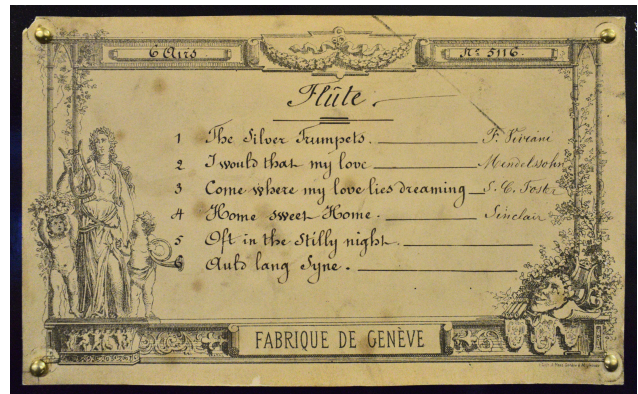 6 Airs.
Nº 5116.
Flûte.
1 The Silver Trumpets. F. Viviani
2 I would that my love Mendelssohn
3 Come where my love lies dreaming S. C. Foste
4 Home sweet Home. Sinclair
5 Oft in the Stilly night.
6 Auld lang Syne.
FABRIQUE DE GENÈVE